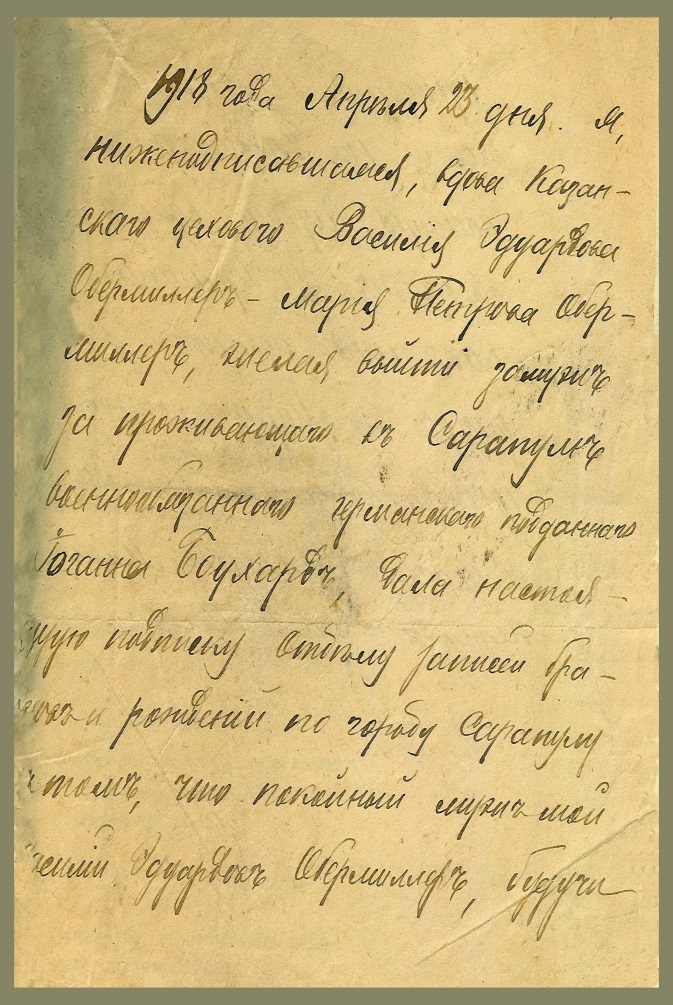 1918 года Апрѣля 23 дня. Я,
нижеподписавшаяся, вдова Казан-
скаго цехового Василія Эдуардова
Обермиллеръ - Марія Петрова Обер-
миллеръ, желая выйти замужъ
за проживающаго въ Сарапулѣ
военнообязаннаго германскаго подданнаго
Іоганна Боухардъ, дала настоя-
щую подписку Отдѣлу записи бра-
ковъ и рожденій по городу Сарапулу
в томъ, что покойный мужъ мой
Василій Эдуардовъ Обермиллеръ, будучи